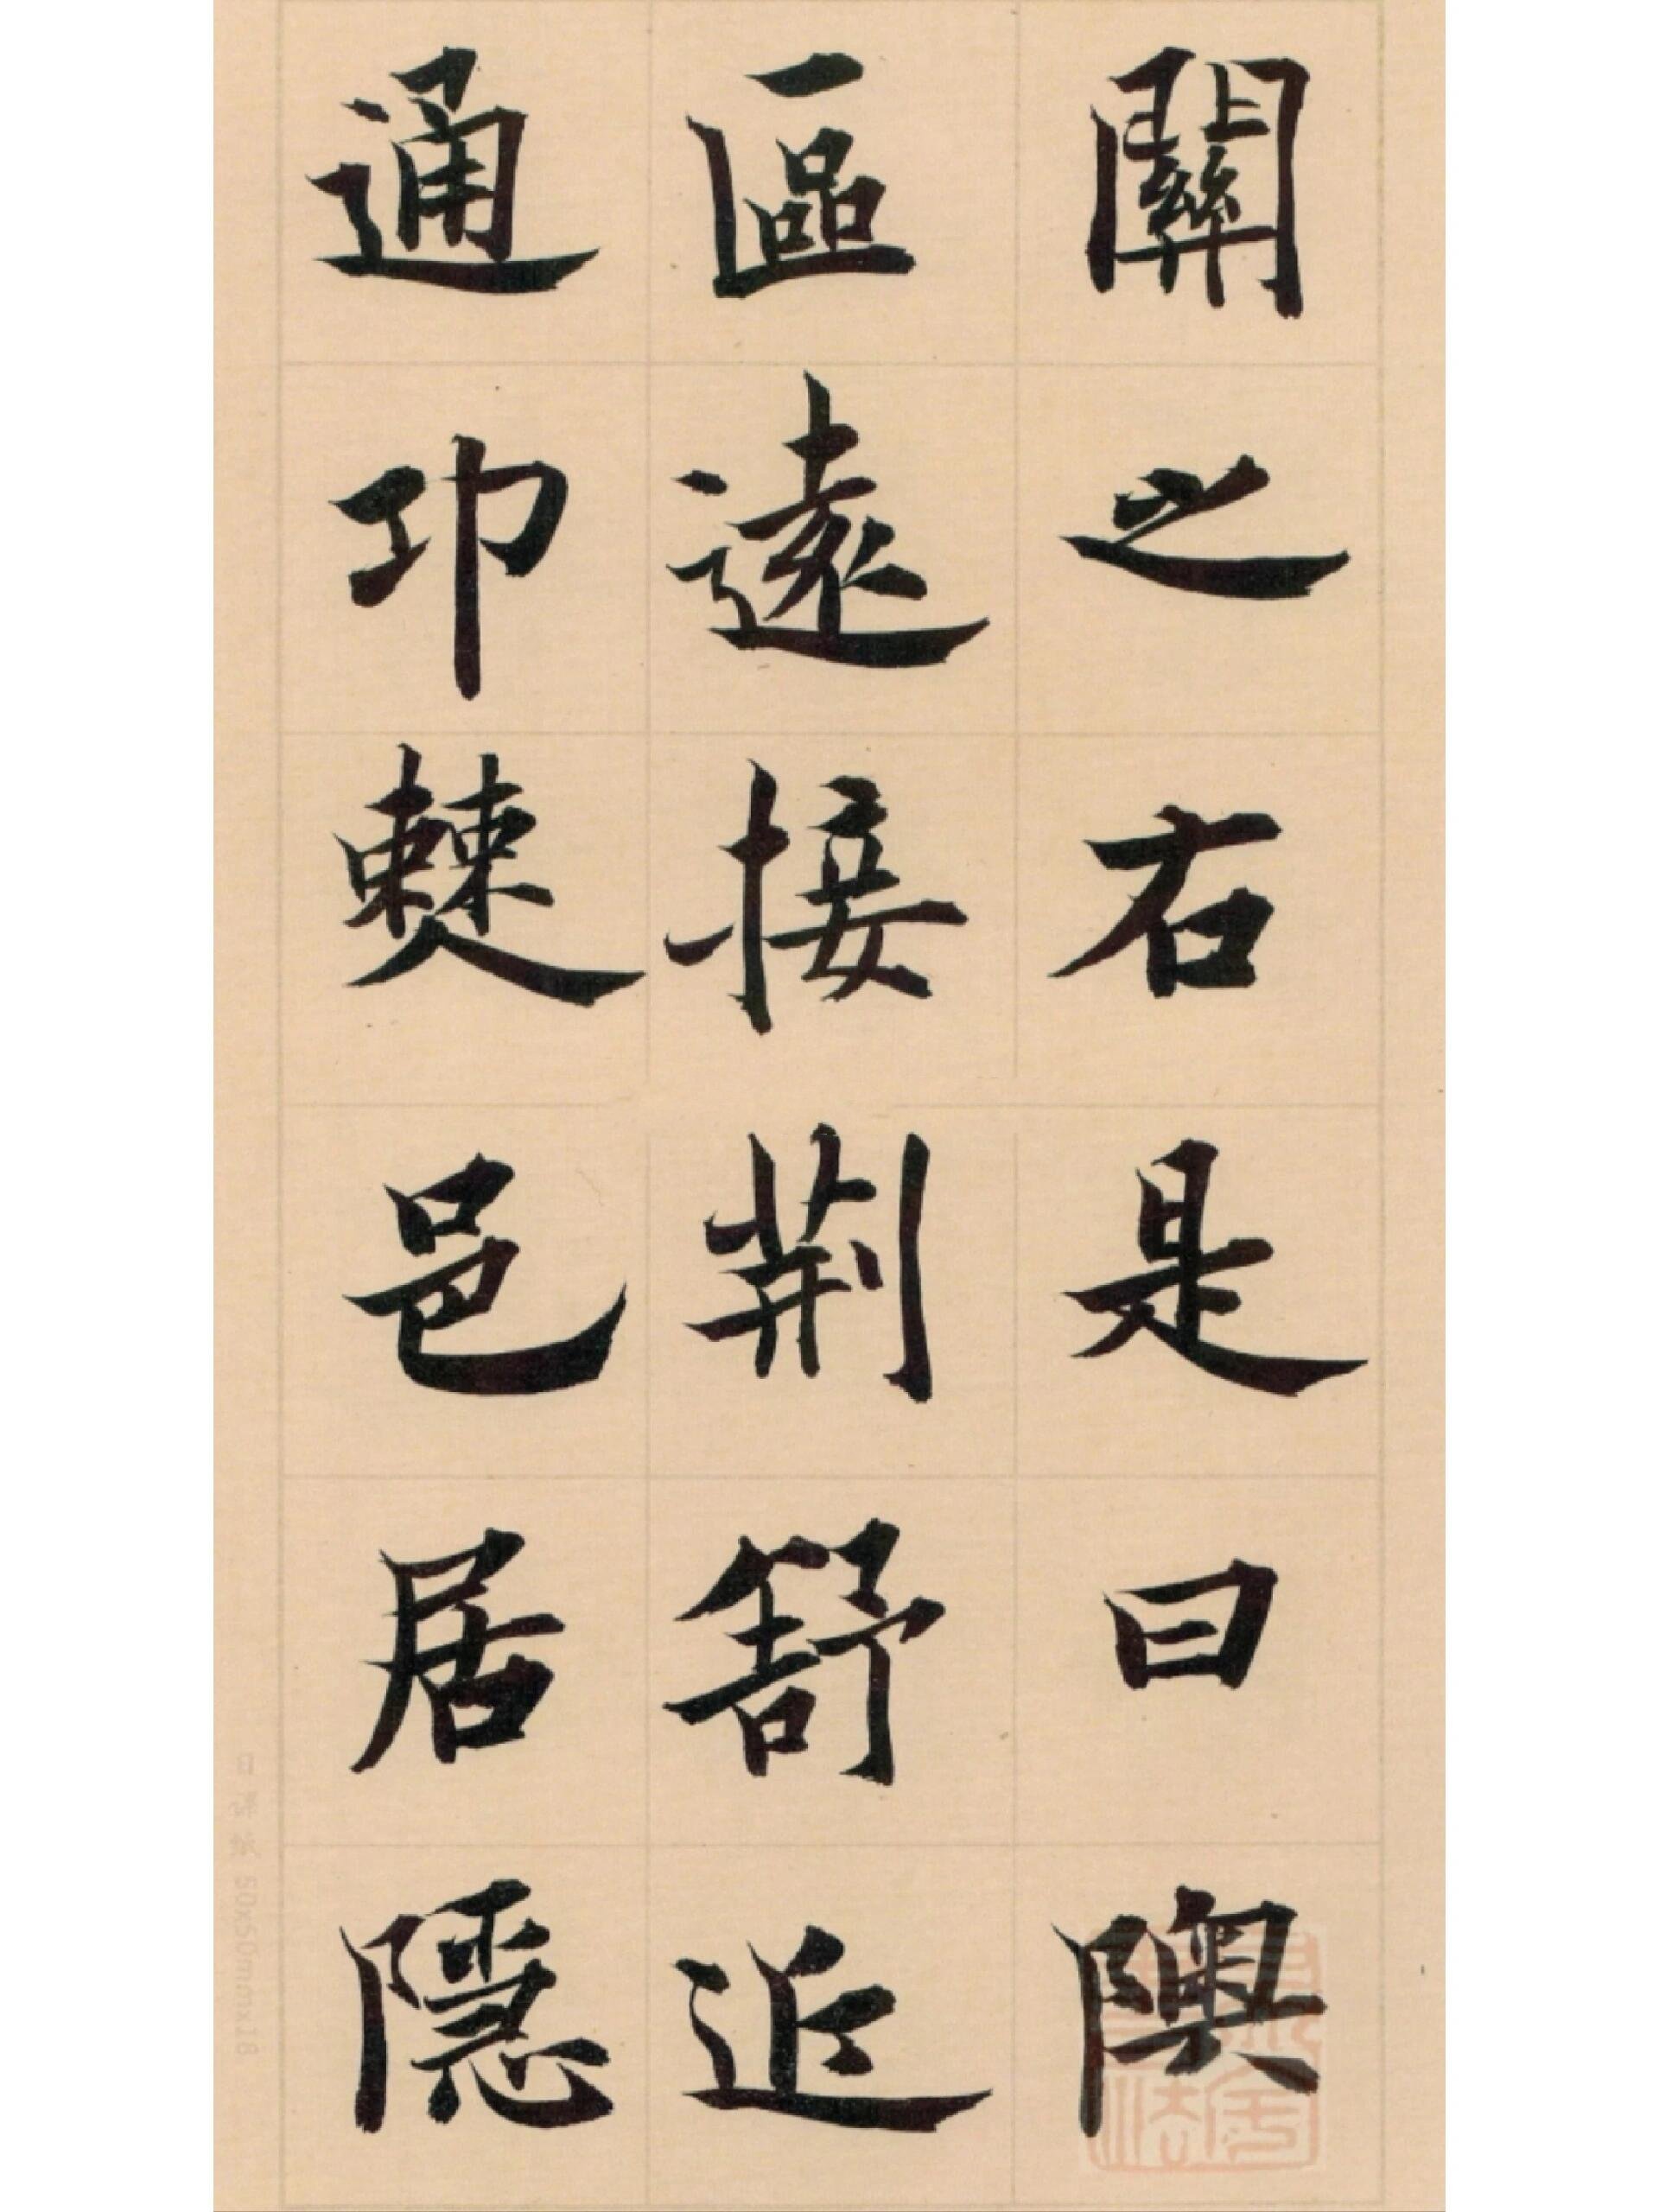 關之右是曰隩
區遠接荊舒近
通卭僰邑居隱
50x50mmx18